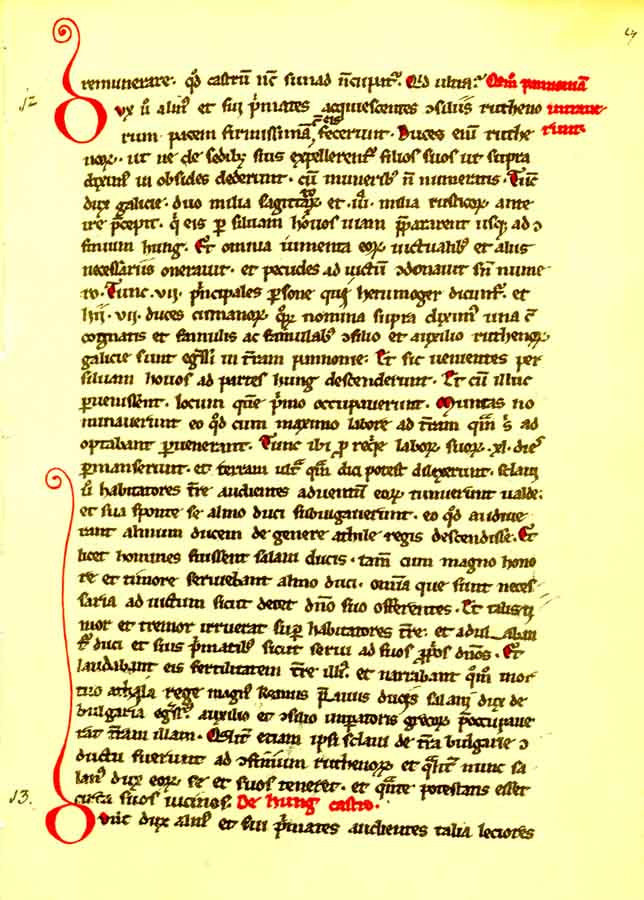 remunerare. qd castrū nc̄ sunad nūcupat͛. Qid ultra? Qom̄ pannoniā
Dux ū almꝰ et sui p̄mates acquiescentes ɔsiliis rutheno intraue
rum pacem firmissimā cū eis fecerunt. Duces enī ruthe runt
noꝝ. ut ne de sedibꝫ suis expellerent͛ filios suos ut supra
diximꝰ in obsides dederunt. cū muneribꝫ nō numeratis. Tūc
dux galicie. duo milia sagittatoꝝ et .iii. milia rusticoꝝ ante
ire p̄cepit. q̄ eis ꝑ siluam houos uiam p̄pararent usqꝫ ad ɔ
finium hung. Et omnia iumenta eoꝝ uictualibꝫ et aliis
necessariis onerauit. et pecudes ad uictū ɔdonauit sn̄ nume
ro. Tunc .vii. p̄ncipales ꝑsone que hetumoger dicunt͛. et
hii. vii. duces cumanoꝝ qꝝ nomina supra diximꝰ una cū
cognatis et famulis ac famulabꝫ ɔsilio et auxilio ruthenoꝝ
galicie sunt egr̄ssi in t̄ram pannonie. Et sic uenientes per
siluam houos ad partes hung descenderunt. Et cū illuc
ꝑuenissent. locum quē p̄mo occupauerunt. Muncas no
minauerunt eo qd cum maximo labore ad t̄ram quā s̄ ad
optabant ꝑuenerant. Tunc ibi ꝓ reqe laboꝝ suoꝝ .xl. dies
ꝑmanserunt. et terram ult̄ qm̄ dici potest dilexerunt. Sclaui
ū habitatores t̄re audientes aduentū eoꝝ timuerunt ualde;
et sua sponte se almo duci subiugauerunt. eo qd audiue
rant almum ducem de genere athile regis descendisse. Et
licet homines fuissent salani ducis. tam̄ cum magno hono
re et timore seruiebant almo duci. omīa que sunt neces
saria ad uictum sicut decet dn̄o suo offerentes. Et talis ti
mor et tremor irruerat suꝑ habitatores t̄re. et adulaban
t͛ duci et suis p̄matibꝫ sicut serui ad suos ꝓpos dn̄os. Et
laudabant eis fertilitatem t̄re illiꝰ. et narrabant qm̄ mor
tuo athila rege magnꝰ keanus p̄auus ducis salani dux de
bulgaria egr̄ssꝰ auxilio et ɔsilio impatoris grecoꝝ p̄occupaue
rat t̄ram illam. Qalit͛ etiam ipsi sclaui de t̄ra bulgarie ɔ
ducti fuerunt ad ɔfinium ruthenoꝝ et qalit͛ nunc sa
lanꝰ dux eoꝝ se et suos teneret. et qante potestatis esset
circa suos uicinos. De hung castro.
Tunc dux almꝰ et sui p̄mates audientes talia leciores
12
13.